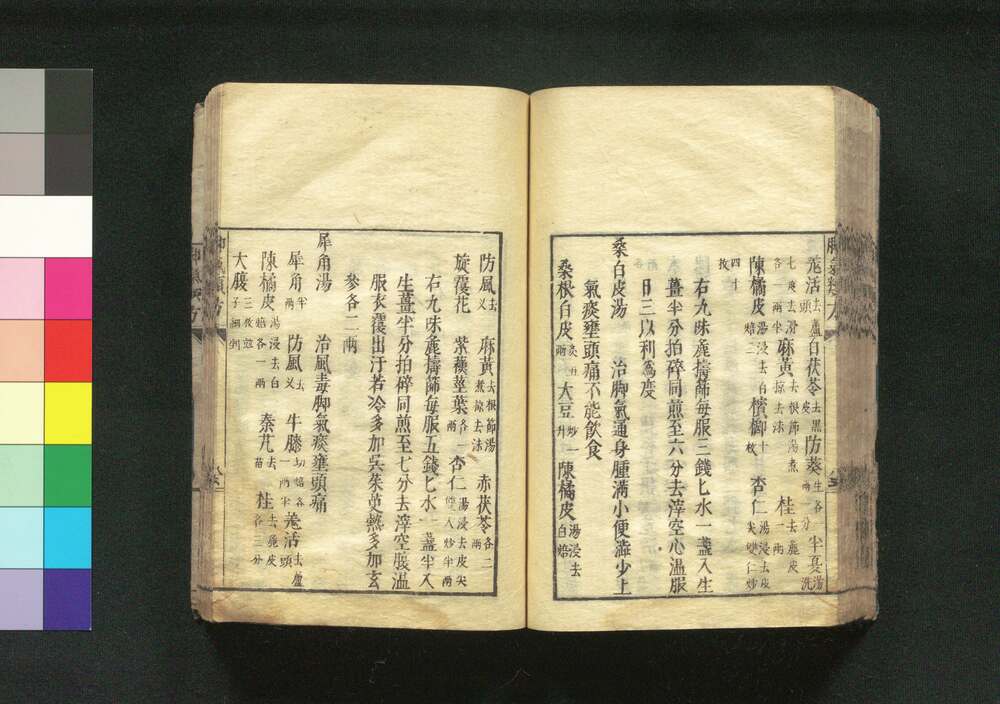 羗活去蘆頭 白茯苓去黑皮 防葵各一分 半夏生湯洗
七度去滑各一兩半 麻黃去根節湯煮掠去沫 桂去麁皮一兩
陳橘皮湯浸去白焙二 檳榔十枚 杏仁湯浸去皮尖雙仁炒
四十枚
右九味麁擣篩每服三錢匕水一盞入生
薑半分拍碎同煎至六分去滓空心溫服
日三以利爲度
桑白皮湯 治脚氣通身腫滿小便澁少上
氣痰壅頭痛不能飲食
桑根白皮炙五兩 大豆炒一升 陳橘皮湯浸去白焙
防風去叉 麻黃去根節湯煮掠去沫 赤茯苓各二兩
旋覆花 紫蘇莖葉各一兩 杏仁湯浸去皮尖雙人炒半兩
右九味麁擣篩每服五錢匕水一盞半入
生薑半分拍碎同煎至七分去滓空腹溫
服衣覆出汗若冷多加吳茱萸熱多加玄
參各二兩
犀角湯 治風毒脚氣痰壅頭痛
犀角半兩 防風去叉 牛膝切焙各一兩半 羗活去蘆頭
陳橘皮湯浸去白焙各一兩 秦艽去苗 桂去麁皮各三分
大腹三枚並子細剉